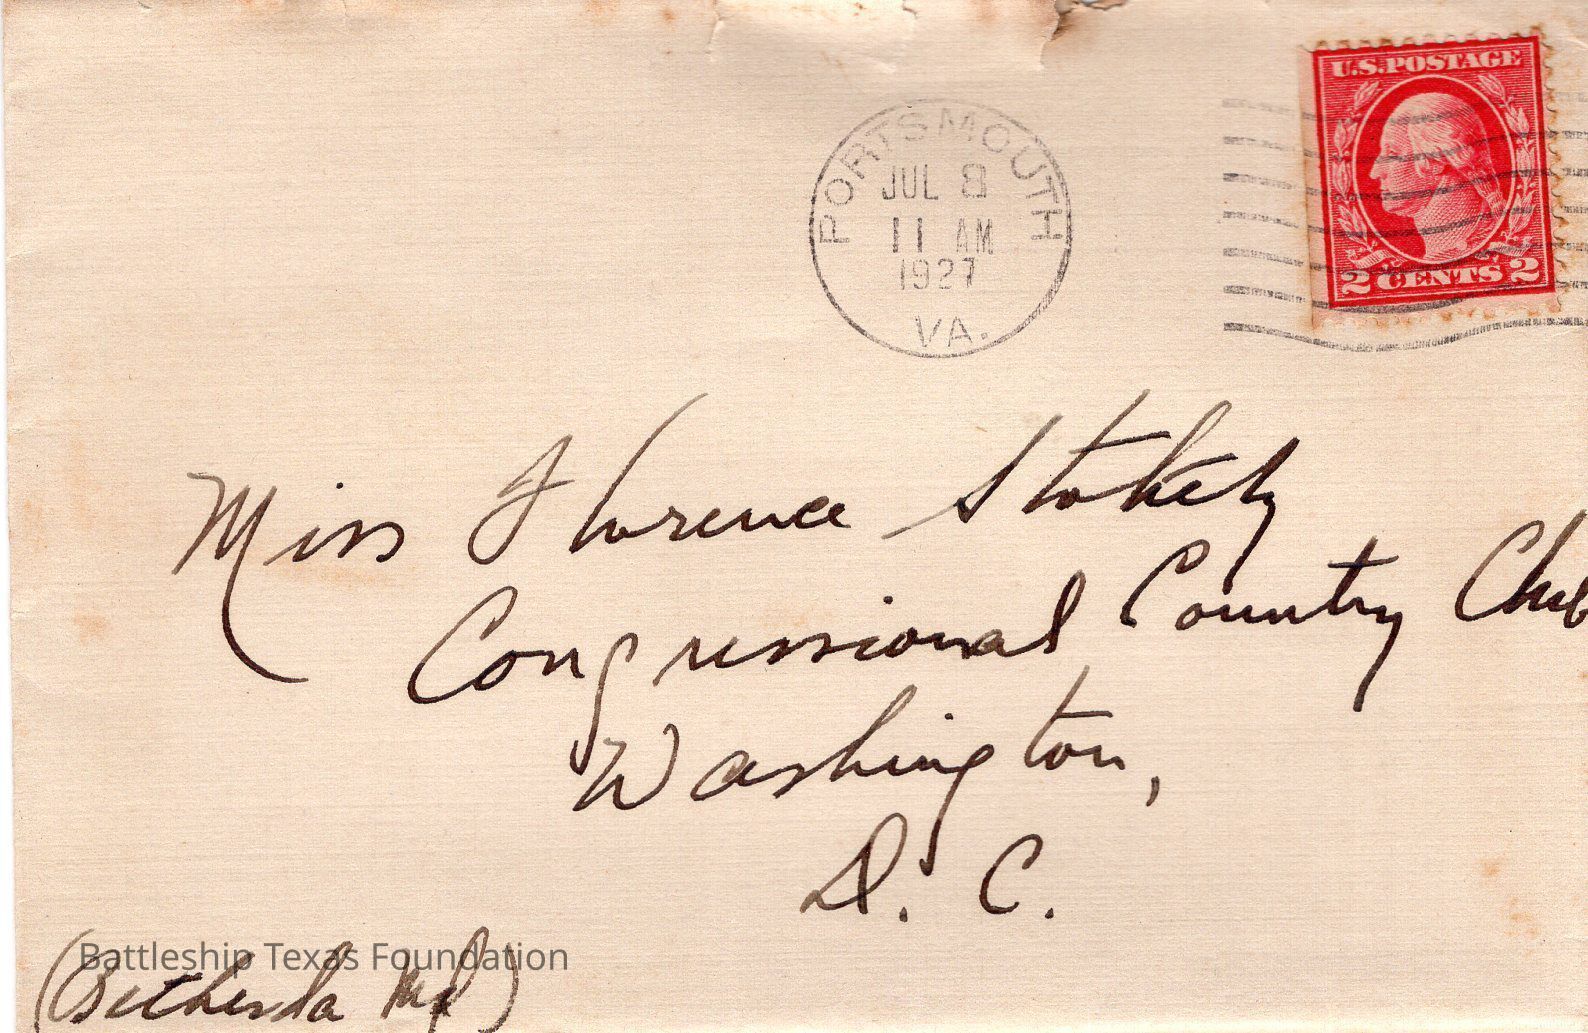 U.S. POSTAGE
2 CENTS 2
PORTSMOUTH
JUL 8
11 AM
1927
VA.
Miss Florence Stokely
Congressional Country Club
Washington,
D. C.
(Bethesda Md)
Battleship Texas Foundation